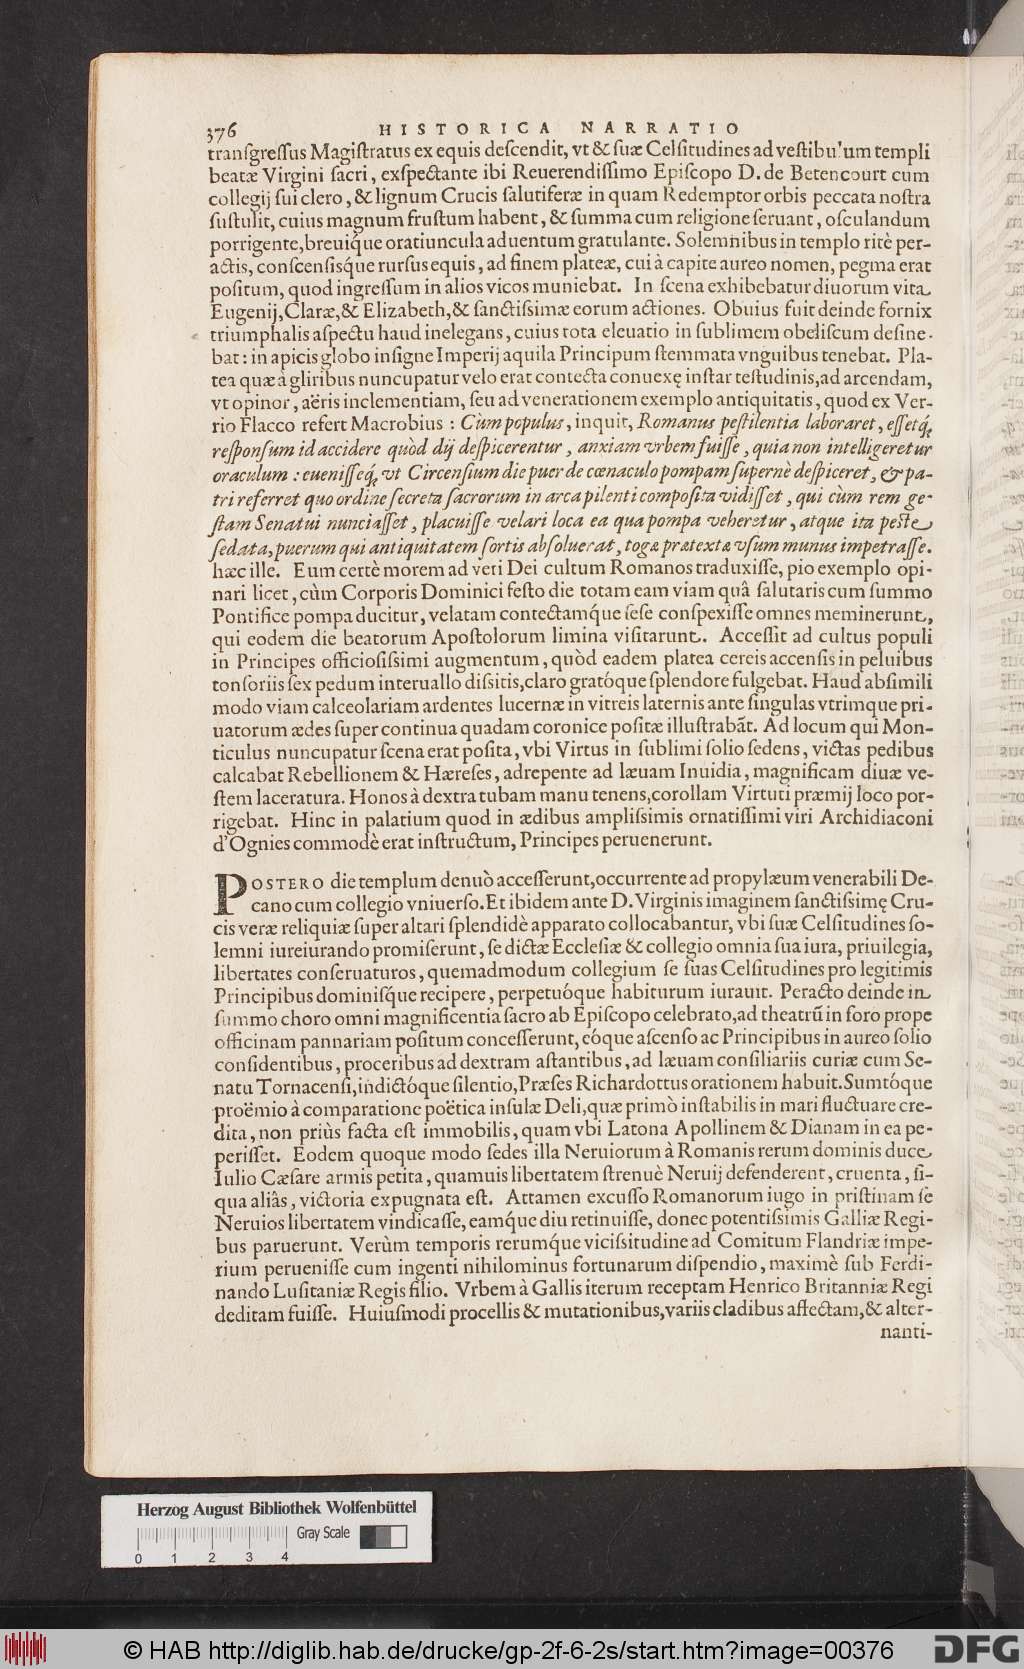 376 HISTORICA NARRATIO
tranſgreſſus Magiſtratus ex equis deſcendit, vt & ſuæ Celſitudines ad veſtibu'um templi
beatæ Virgini ſacri, exſpectante ibi Reuerendiſſimo Epiſcopo D. de Betencourt cum
collegij ſui clero, & lignum Crucis ſalutiferæ in quam Redemptor orbis peccata noſtra
ſuſtulit, cuius magnum fruſtum habent, & ſumma cum religione ſeruant, oſculandum
porrigente, breuíque oratiuncula aduentum gratulante. Solemnibus in templo ritè per-
actis, conſcenſíſque rurſus equis, ad finem plateæ, cui à capite aureo nomen, pegma erat
poſitum, quod ingreſſum in alios vicos muniebat. In ſcena exhibebatur diuorum vita
Eugenij, Claræ, & Elizabeth, & ſanctiſsimæ eorum actiones. Obuius fuit deinde fornix
triumphalis aſpectu haud inelegans, cuius tota eleuatio in ſublimem obeliſcum deſine-
bat: in apicis globo inſigne Imperij aquila Principum ſtemmata vnguibus tenebat. Pla-
tea quæ à gliribus nuncupatur velo erat contecta conuexę inſtar teſtudinis, ad arcendam,
vt opinor, aëris inclementiam, ſeu ad venerationem exemplo antiquitatis, quod ex Ver-
rio Flacco refert Macrobius: Cùm populus, inquit, Romanus peſtilentia laboraret, eſſetq́ue
reſponſum id accidere quòd dij deſpicerentur, anxiam vrbem fuiſſe, quia non intelligeretur
oraculum: eueniſſeq́ue vt Circenſium die puer de cœnaculo pompam ſupernè deſpiceret, & pa-
tri referret quo ordine ſecreta ſacrorum in arca pilenti compoſita vidiſſet, qui cùm rem ge-
ſtam Senatui nunciaſſet, placuiſſe velari loca ea qua pompa veheretur, atque ita peſte
ſedata, puerum qui antiquitatem ſortis abſoluerat, togæ prætextæ vſum munus impetraſſe.
hæc ille. Eum certè morem ad veri Dei cultum Romanos traduxiſſe, pio exemplo opi-
nari licet, cùm Corporis Dominici feſto die totam eam viam quâ ſalutaris cum ſummo
Pontifice pompa ducitur, velatam contectamq́ue ſeſe conſpexiſſe omnes meminerunt,
qui eodem die beatorum Apoſtolorum limina viſitarunt. Acceſſit ad cultus populi
in Principes officioſiſsimi augmentum, quòd eadem platea cereis accenſis in peluibus
tonſoriis ſex pedum interuallo diſsitis, claro gratóque ſplendore fulgebat. Haud abſimili
modo viam calceolariam ardentes lucernæ in vitreis laternis ante ſingulas vtrimque pri-
uatorum ædes ſuper continua quadam coronice poſitæ illuſtrabāt. Ad locum qui Mon-
ticulus nuncupatur ſcena erat poſita, vbi Virtus in ſublimi ſolio ſedens, victas pedibus
calcabat Rebellionem & Hæreſes, adrepente ad læuam Inuidia, magnificam diuæ ve-
ſtem laceratura. Honos à dextra tubam manu tenens, corollam Virtuti præmij loco por-
rigebat. Hinc in palatium quod in ædibus ampliſsimis ornatiſſimi viri Archidiaconi
d'Ognies commodè erat inſtructum, Principes peruenerunt.
POSTERO die templum denuò acceſſerunt, occurrente ad propylæum venerabili De-
cano cum collegio vniuerſo. Et ibidem ante D. Virginis imaginem ſanctiſsimę Cru-
cis veræ reliquiæ ſuper altari ſplendidè apparato collocabantur, vbi ſuæ Celſitudines ſo-
lemni iureiurando promiſerunt, ſe dictæ Eccleſiæ & collegio omnia ſua iura, priuilegia,
libertates conſeruaturos, quemadmodum collegium ſe ſuas Celſitudines pro legitimis
Principibus dominíſque recipere, perpetuóque habiturum iurauit. Peracto deinde in
ſummo choro omni magnificentia ſacro ab Epiſcopo celebrato, ad theatrū in foro prope
officinam pannariam poſitum conceſſerunt, eóque aſcenſo ac Principibus in aureo ſolio
conſidentibus, proceribus ad dextram aſtantibus, ad læuam conſiliariis curiæ cum Se-
natu Tornacenſi, indictóque ſilentio, Præſes Richardottus orationem habuit. Sumtóque
proëmio à comparatione poëtica inſulæ Deli, quæ primò inſtabilis in mari fluctuare cre-
dita, non priùs facta eſt immobilis, quam vbi Latona Apollinem & Dianam in ea pe-
periſſet. Eodem quoque modo ſedes illa Neruiorum à Romanis rerum dominis duce
Iulio Cæſare armis petita, quamuis libertatem ſtrenuè Neruij defenderent, cruenta, ſi-
qua aliâs, victoria expugnata eſt. Attamen excuſſo Romanorum iugo in priſtinam ſe
Neruios libertatem vindicaſſe, eamq́ue diu retinuiſſe, donec potentiſsimis Galliæ Regi-
bus paruerunt. Verùm temporis rerumq́ue viciſsitudine ad Comitum Flandriæ impe-
rium perueniſſe cum ingenti nihilominus fortunarum diſpendio, maximè ſub Ferdi-
nando Luſitaniæ Regis filio. Vrbem à Gallis iterum receptam Henrico Britanniæ Regi
deditam fuiſſe. Huiuſmodi procellis & mutationibus, variis cladibus affectam, & alter-
nanti-
Herzog August Bibliothek Wolfenbüttel
Gray Scale
0 1 2 3 4
© HAB http://diglib.hab.de/drucke/gp-2f-6-2s/start.htm?image=00376 DFG